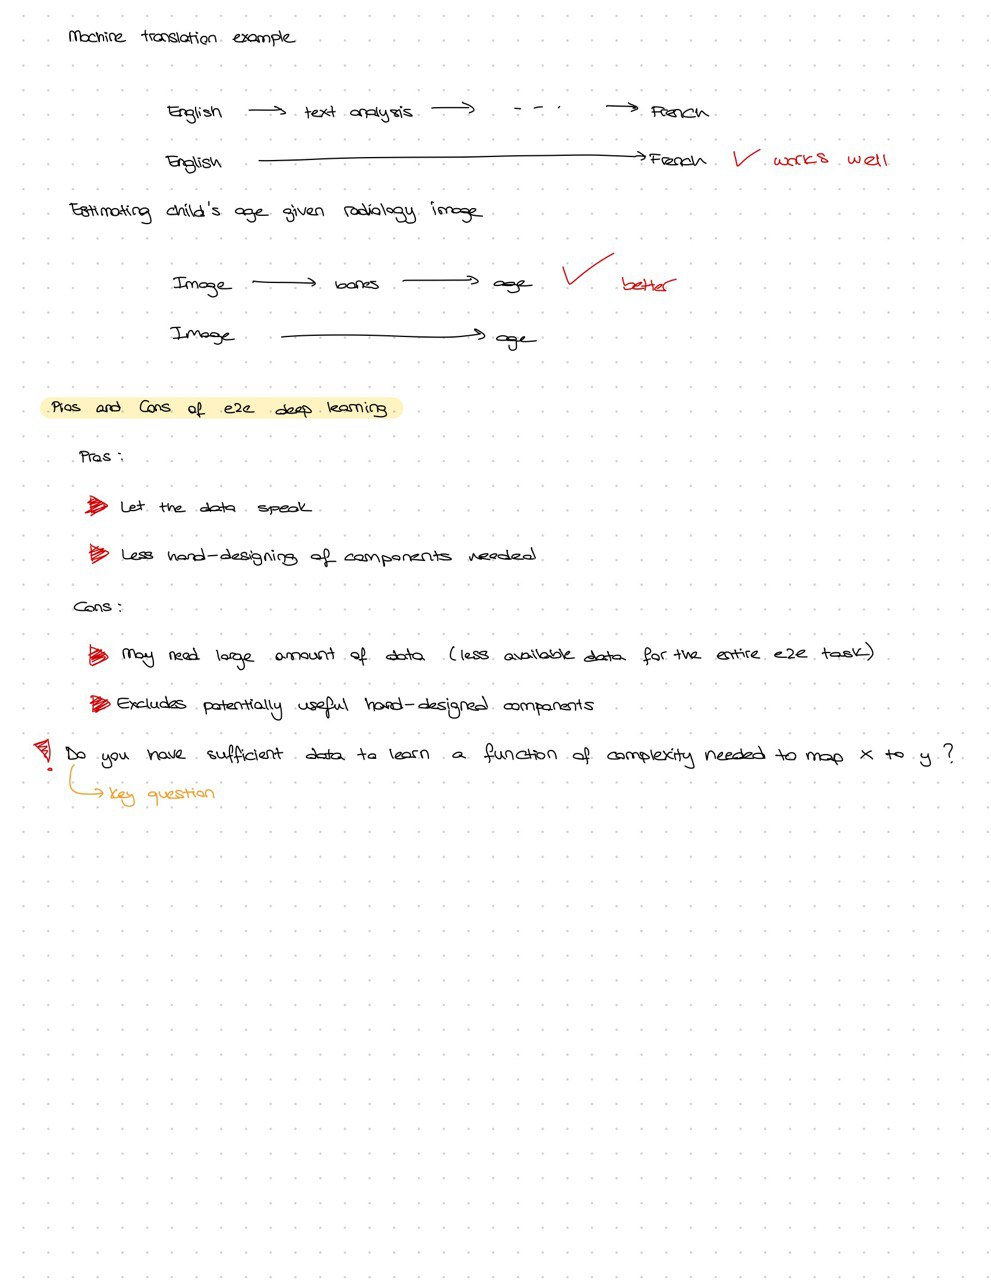 Machine translation example
English → text analysis → - - - → French
English → French ✓ works well
Estimating child's age given radiology image
Image → bones → age ✓ better
Image → age
Pros and Cons of e2e deep learning
Pros :
Let the data speak
Less hand-designing of components needed
Cons :
May need large amount of data (less available data for the entire e2e task)
Excludes potentially useful hand-designed components
! Do you have sufficient data to learn a function of complexity needed to map x to y ?
→ key question